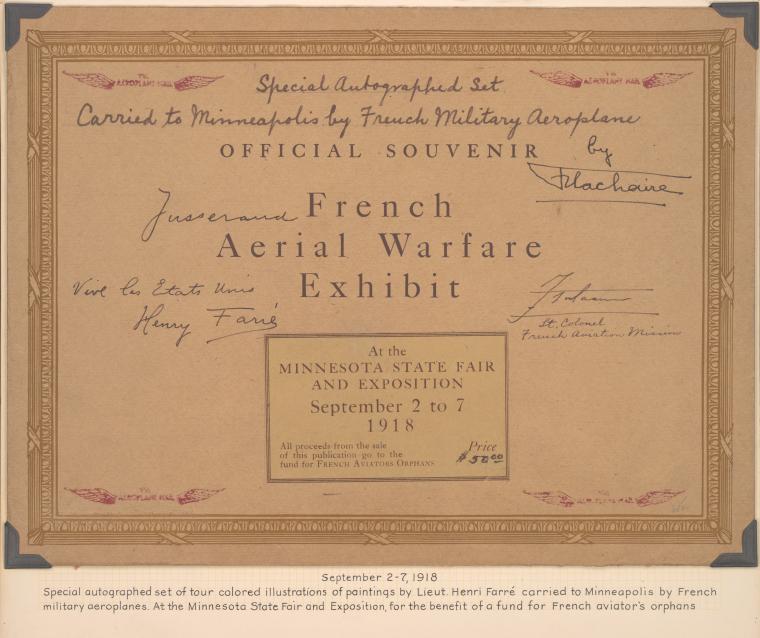 VIA AEROPLANE MAIL
VIA AEROPLANE MAIL
Special Autographed Set
Carried to Minneapolis by French Military Aeroplane
by
OFFICIAL SOUVENIR
Flachaire
Jusserand
French
Aerial Warfare
Exhibit
Vive les Etats Unis
Henry Farré
Lt. Colonel
French Aviation Mission
At the
MINNESOTA STATE FAIR
AND EXPOSITION
September 2 to 7
1918
All proceeds from the sale
of this publication go to the
fund for FRENCH AVIATORS ORPHANS
Price
$50.00
VIA AEROPLANE MAIL
VIA AEROPLANE MAIL
September 2-7, 1918
Special autographed set of tour colored illustrations of paintings by Lieut. Henri Farré carried to Minneapolis by French
military aeroplanes. At the Minnesota State Fair and Exposition, for the benefit of a fund for French aviator's orphans